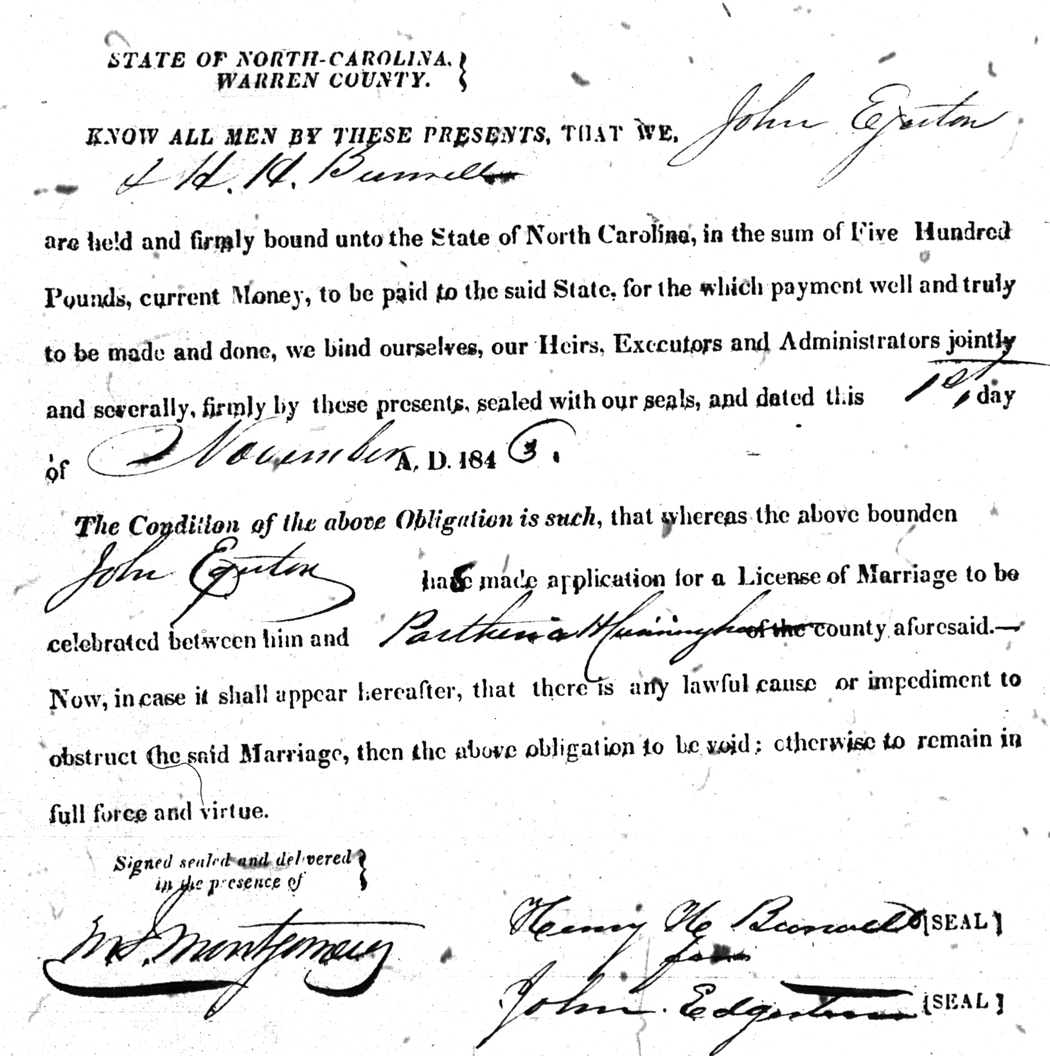 STATE OF NORTH-CAROLINA.
WARREN COUNTY.
KNOW ALL MEN BY THESE PRESENTS, THAT WE, John Egerton
& H. H. Burwell
are held and firmly bound unto the State of North Carolina, in the sum of Five Hundred
Pounds, current Money, to be paid to the said State, for the which payment well and truly
to be made and done, we bind ourselves, our Heirs, Executors and Administrators jointly
and severally, firmly by these presents, sealed with our seals, and dated this 1st, day
of November A. D. 184 3.
The Condition of the above Obligation is such, that whereas the above bounden
John Egerton has made application for a License of Marriage to be
celebrated between him and Parthenia H of the county aforesaid.—
Now, in case it shall appear hereafter, that there is any lawful cause or impediment to
obstruct the said Marriage, then the above obligation to be void; otherwise to remain in
full force and virtue.
Signed sealed and delivered
in the presence of
Montgomery
Henry H Burwell [SEAL]
John Edgerton [SEAL]